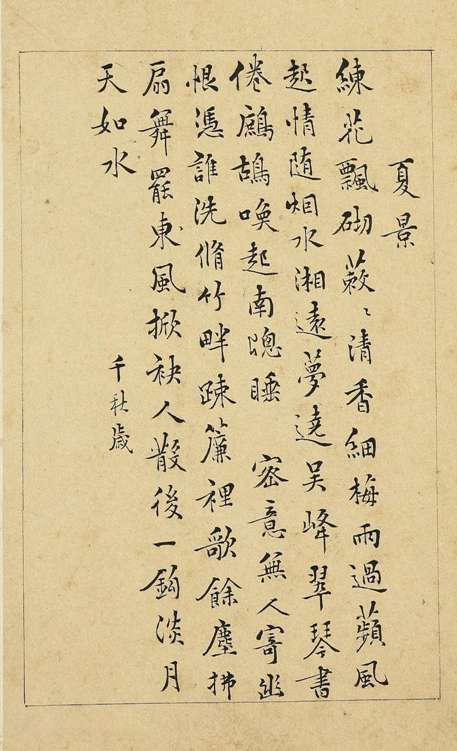 夏景
練花飄砌蔌〻清香細梅雨過蘋風
起情随烟水湘遠夢遶吳峰翠琴書
倦鷓鴣喚起南牕睡　密意無人寄幽
恨憑誰洗脩竹畔踈簾裡歌餘塵拂
扇舞罷東風掀袂人散後一鈎淡月
天如水
千秋歲